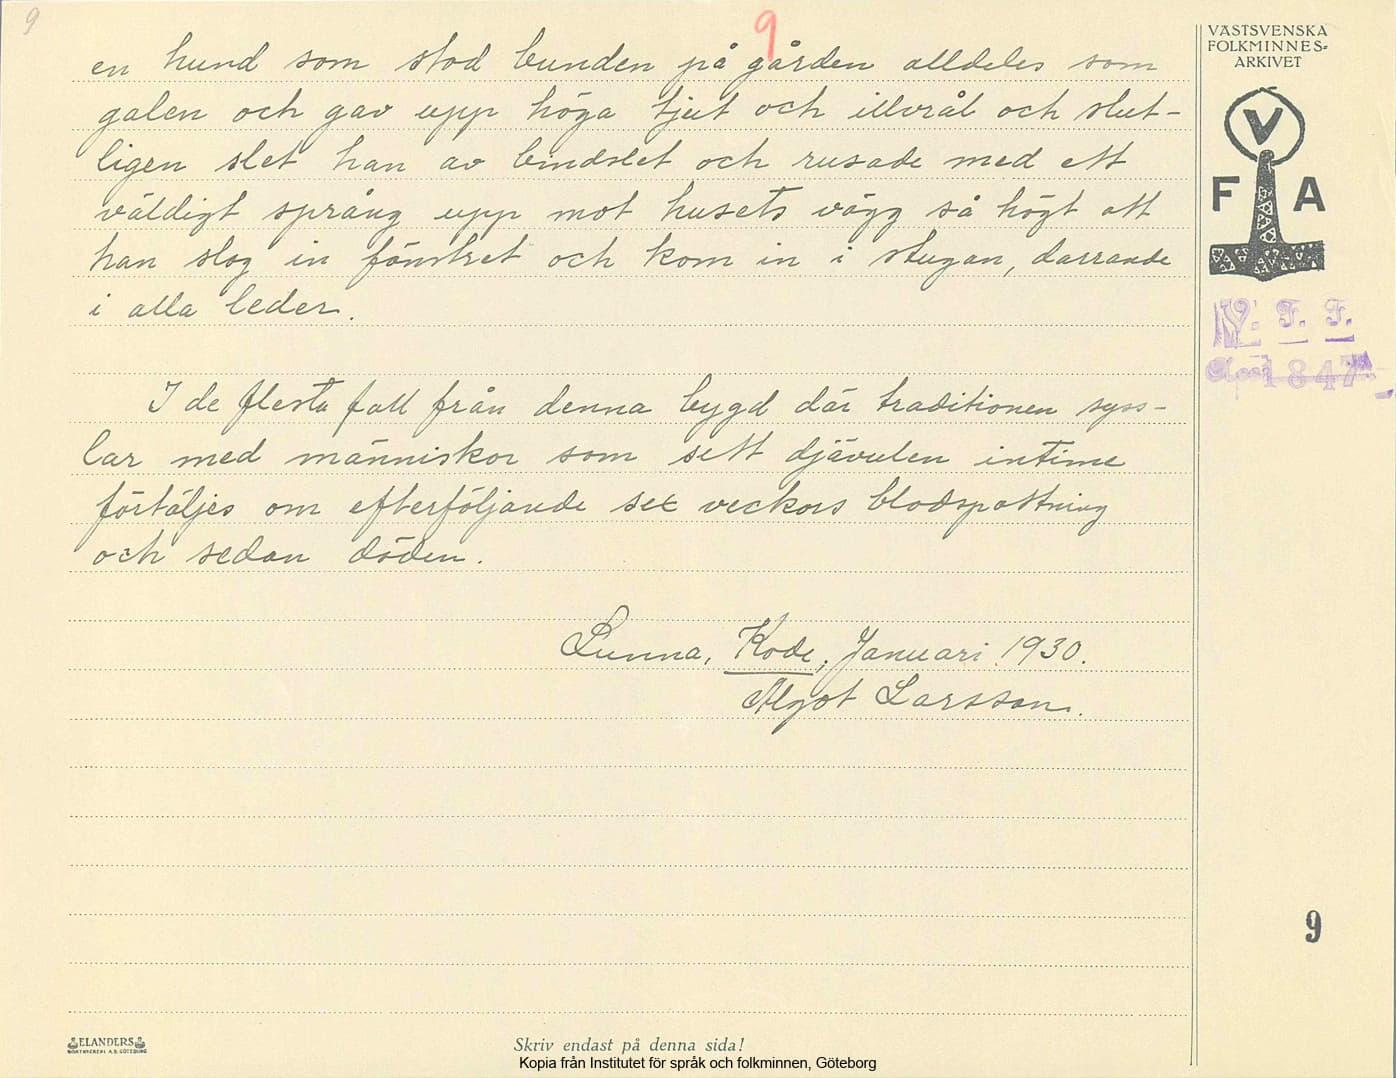 9
9
VÄSTSVENSKA
FOLKMINNES-
ARKIVET
V
F A
V. F. F.
1847
en hund som stod bunden på gården alldeles som
galen och gav upp höga tjut och illvrål och slut-
ligen slet han av bindslet och rusade med ett
väldigt språng upp mot husets vägg så högt att
han slog in fönstret och kom in i stugan, darrande
i alla leder.
I de flesta fall från denna bygd där traditionen syss-
lar med människor som sett djävulen intime
förtäljes om efterföljande sex veckors blodspottning
och sedan döden.
Lunna, Kode, Januari 1930.
Algot Larsson.
9
ELANDERS
BOKTRYCKERI A.B. GÖTEBORG
Skriv endast på denna sida!
Kopia från Institutet för språk och folkminnen, Göteborg